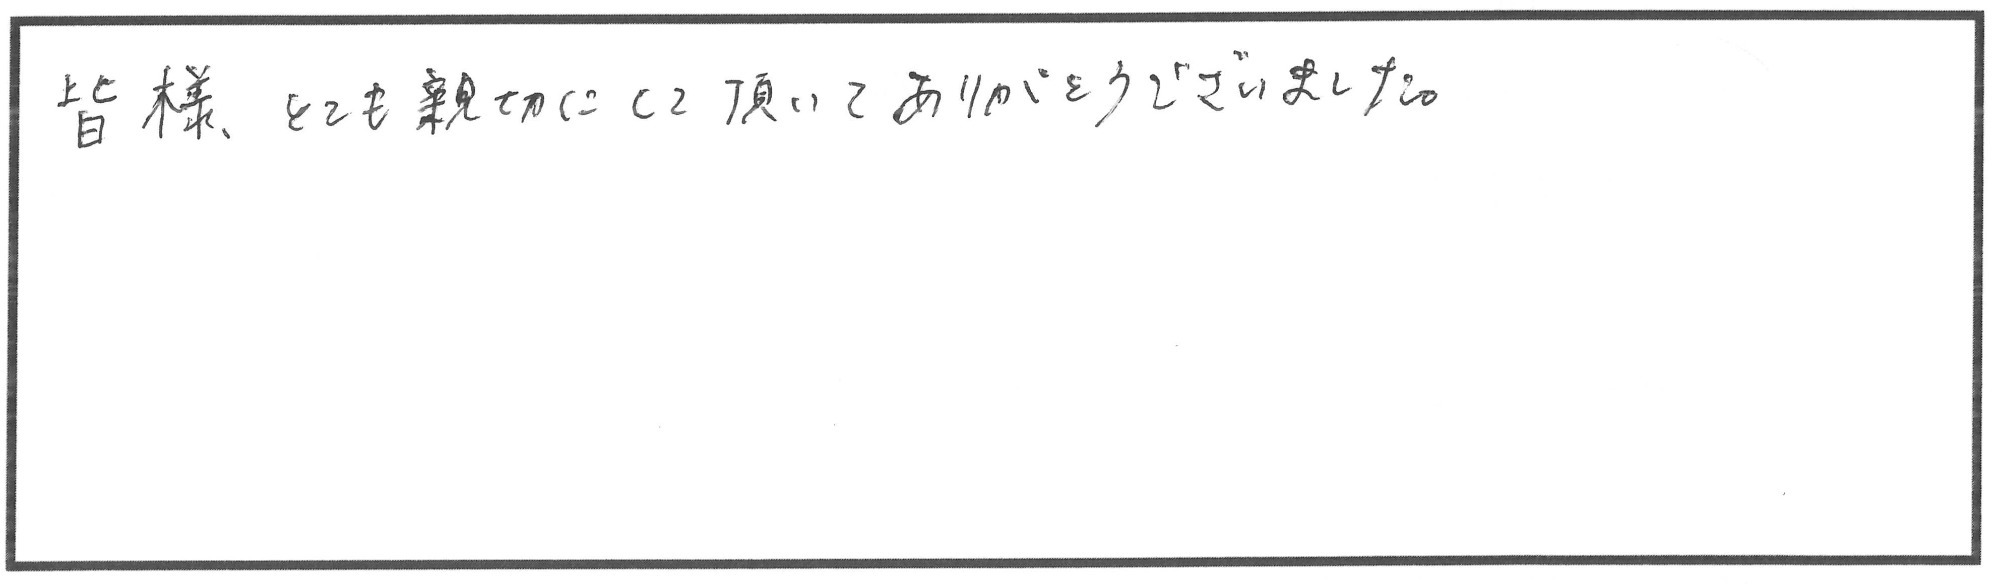 皆様、とても親切にして頂いてありがとうございました。